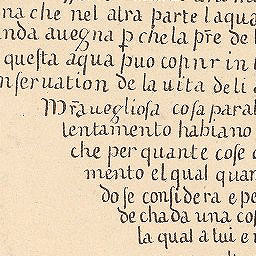 na che nel altra parte laqua
nda auegna p che la pre de l
questa aqua puo coprir in
nseruation de la uita de li a
Mrauegliosa cosa paral
lentamento habiano
che per quante cose
mento el qual quan
do se considera e pe
de chada una cos
la qual a lui e